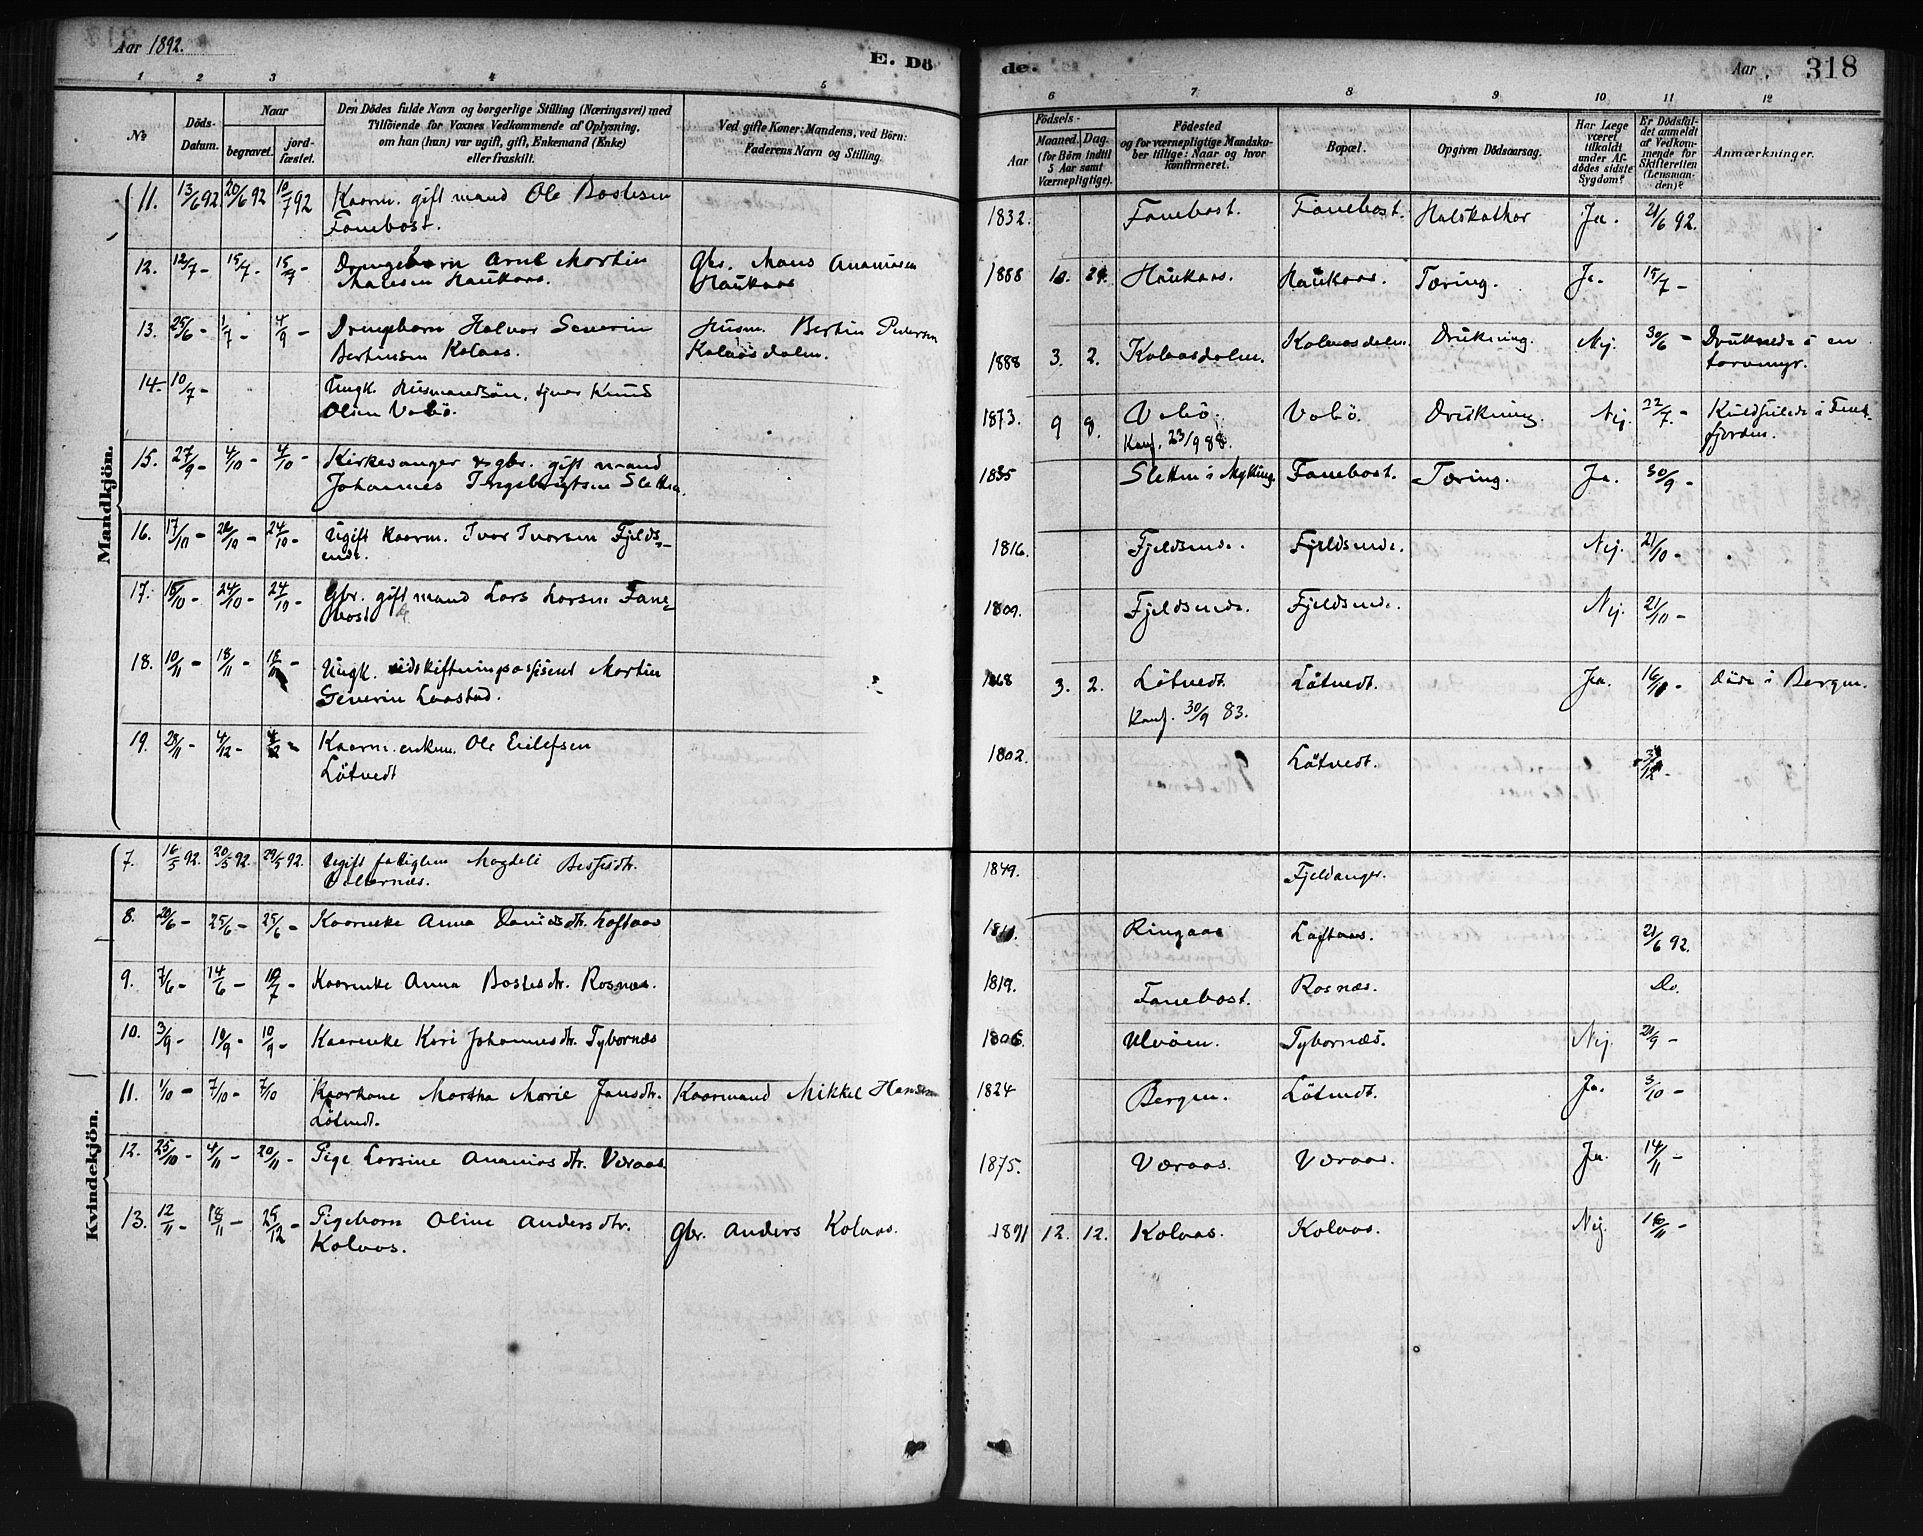 Aar 1892.
E. Dö
de.
Aar
318
1 2 3 4 5
6 7 8 9 10 11 12
No
Döds-
Datum.
Naar
begravet.
jord-
fæstet.
Den Dödes fulde Navn og borgerlige Stilling (Næringsvei) med
Tilföiende for Voxnes Vedkommende af Oplysning,
om han (hun) var ugift, gift, Enkemand (Enke)
eller fraskilt.
Ved gifte Koner: Mandens, ved Börn:
Faderens Navn og Stilling.
Födsels-
Aar
Maaned. Dag.
(for Börn indtil
5 Aar samt
Værnepligtige).
Födested
og for værnepligtige Mandska-
ber tillige: Naar og hvor
konfirmeret.
Bopæl.
Opgiven Dödsaarsag.
Har Læge
været
tilkaldt
under Af-
dödes sidste
Sygdom?
Er Dödsfal-
det anmeldt
af Vedkom-
mende for
Skifteretten
(Lensman-
den)?
Anmærkninger.
Mandkjön.
11. 13/6 92 20/6 92 10/7 92 Kaarm. gift mand Ole Bostesen
Fanebost.
1832. Fanebost. Fanebost. Halskathar Ja. 21/6 92.
12. 12/7 - 15/7 - 15/9 - Drengebarn Arne Martin
Haukaas. Gbr. Mans Ananiasen
Haukaas
1888 10. 24. Haukaas. Haukaas. Tæring. Ja. 15/7 -
13. 25/6 - 1/7 - 4/9 - Drengebarn Halvor Severin
Bertinsen Kolaas. Husm. Bertin Pedersen
Kolaasdalen.
1888 3. 2. Kolaasdalen. Kolaasdalen. Drukning. Nej. 30/6 - Druknede i en
torvmyr.
14. 10/7 - Ungk. Husmandssön, tjener Knud
Olsen Vabö.
1873. 9 8. Vabö. Konf. 23/9 88. Vabö. Drukning. Nej. 22/7 - Kuldseilede i
fjorden.
15. 27/9 - 4/10 - 4/10 - Kirkesanger & gbr. gift mand
Johannes Ingebrigtsen Sletten.
1835 Sletten i Mykting Fanebost. Tæring. Ja. 30/9 -
16. 17/10 - 24/10 - Ugift kaarm. Ivar Ivarsen Fjelds-
ende.
1816. Fjeldsende. Fjeldsende. Nej. 21/10 -
17. 24/10 - 24/10 - Gbr. gift mand Lars Larsen Fane-
bost
1809. Fjeldsende. Fjeldsende. Nej. 21/10 -
18. 10/11 - 18/11 - Ungk. udskiftningsassistent Martin
Severin Laastad.
1868 3. 2. Lötvedt. Konf. 30/9 83. Lötvedt. Ja. Döde i Bergen.
19. 28/11 - 4/12 - Kaarm. enkem. Ole Eilefsen
Lötvedt
1802. Lötvedt.
Kvindekjön.
7. 16/3 92. 20/3 92. 29/5 92. Ugift fattiglem Magdeli
1849. Fjeldanger.
8. 20/6 - 25/6 - 25/6 - Kaarenke Anna Danielsdtr. Loftaas
Ringaas Loftaas. 21/6 92.
9. 7/6 - 14/6 - 10/7 - Kaarenke Anna Bostesdtr. Rosnæs.
1819. Fanebost. Rosnæs. Do.
10. 3/9 - 10/9 - 10/9 - Kaarenke Kari Johannesdtr. Tybornæs
1806. Ulvöen. Tybornæs. Nej.
11. 1/10 - 7/10 - 7/10 Kaarkone Martha Marie Jansdtr.
Lötvedt. Kaarmand Mikkel Hansen
1824 Bergen. Lötvedt. Ja. 3/10 -
12. 25/10 - 4/11 - 20/11 - Pige Larsine Ananiasdtr. Væraas.
1875. Væraas. Væraas. Ja. 14/11 -
13. 12/11 - 18/11 - 25/12 - Pigebarn Oline Andersdtr.
Kolaas. Gbr. Anders Kolaas.
1891 12. 12. Kolaas. Kolaas. Nej. 16/11 -